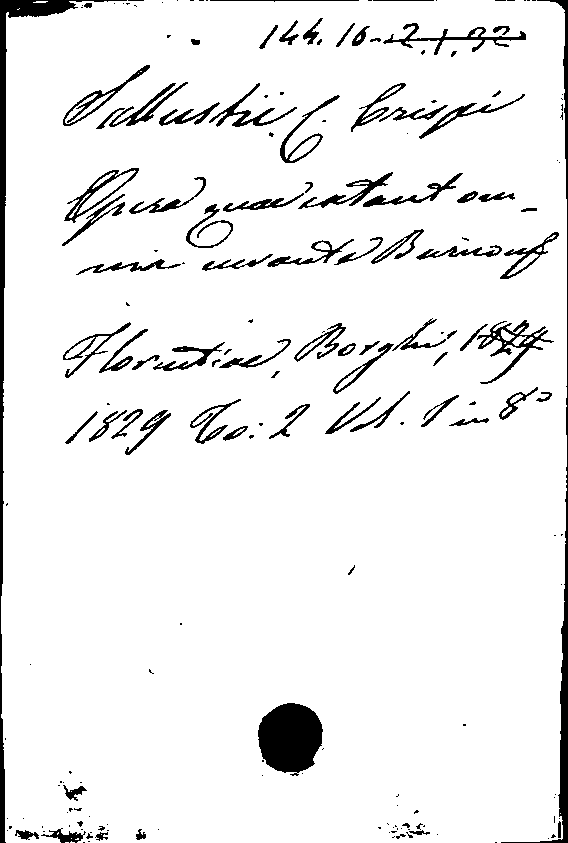 144. 10 - 2.1.32
Sallustii C. Crispi
Opera quae extant om-
nia curante Burnouf
Florentiae, Borghi, 1829
1829 To: 2 Vol. 1 in 8°